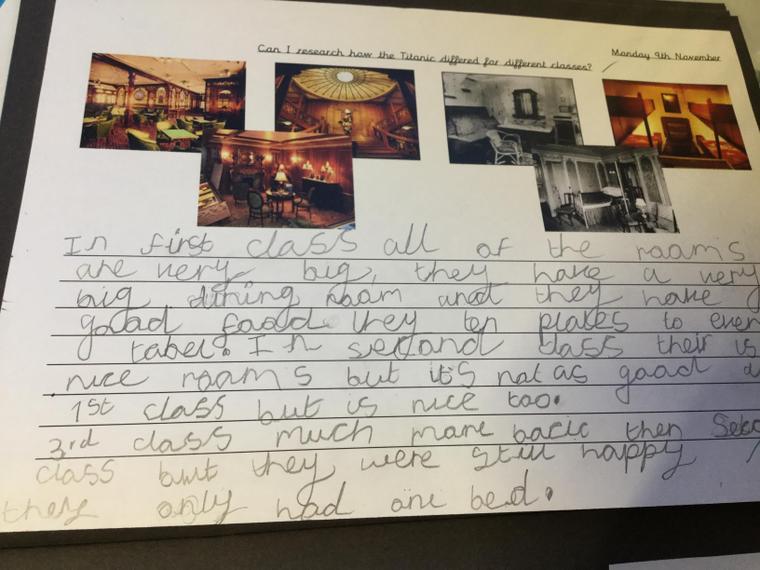 Can I research how the Titanic differed for different classes?
Monday 9th November
In first class all of the rooms
are very big, they have a very
big dining room and they have
good food. they ten plates to ever
tabel. In second class their is
nice rooms but it's not as good a
1st class but is nice too.
3rd class much more basic then Seco
class but they were still happy
they only had one bed.